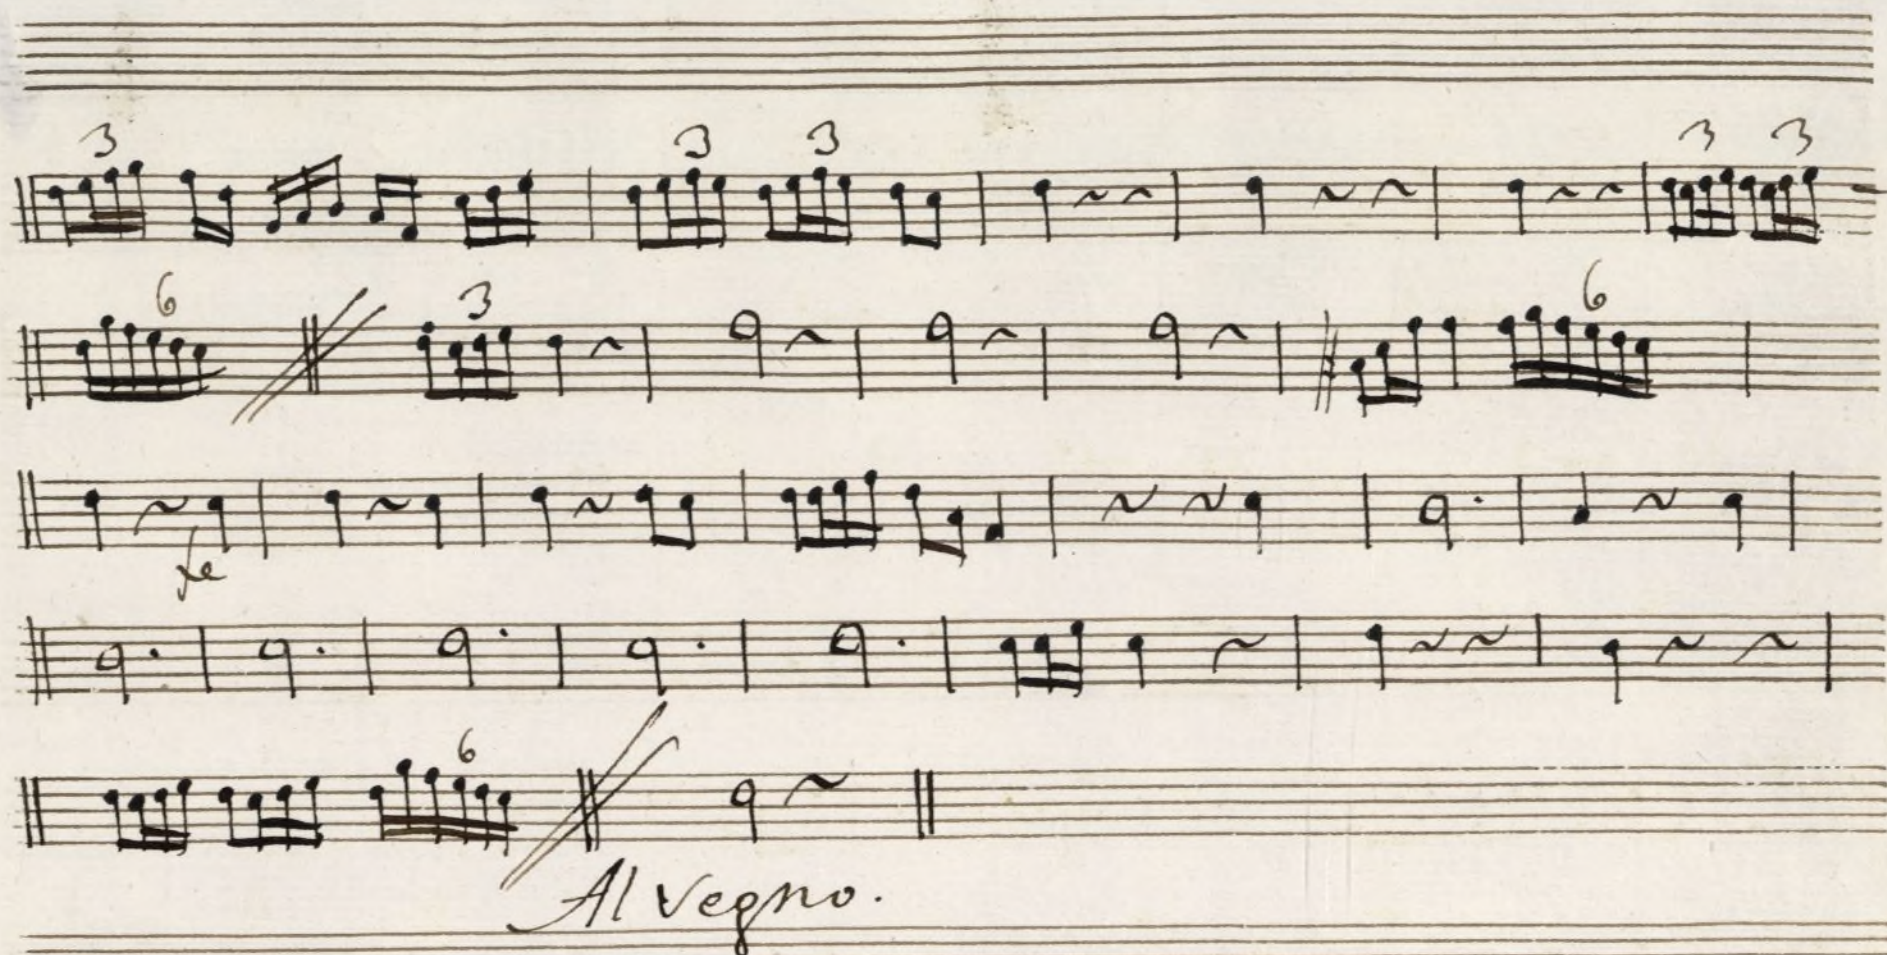 3 3 3 3 3
6 3 6
fe
6
Al Segno.